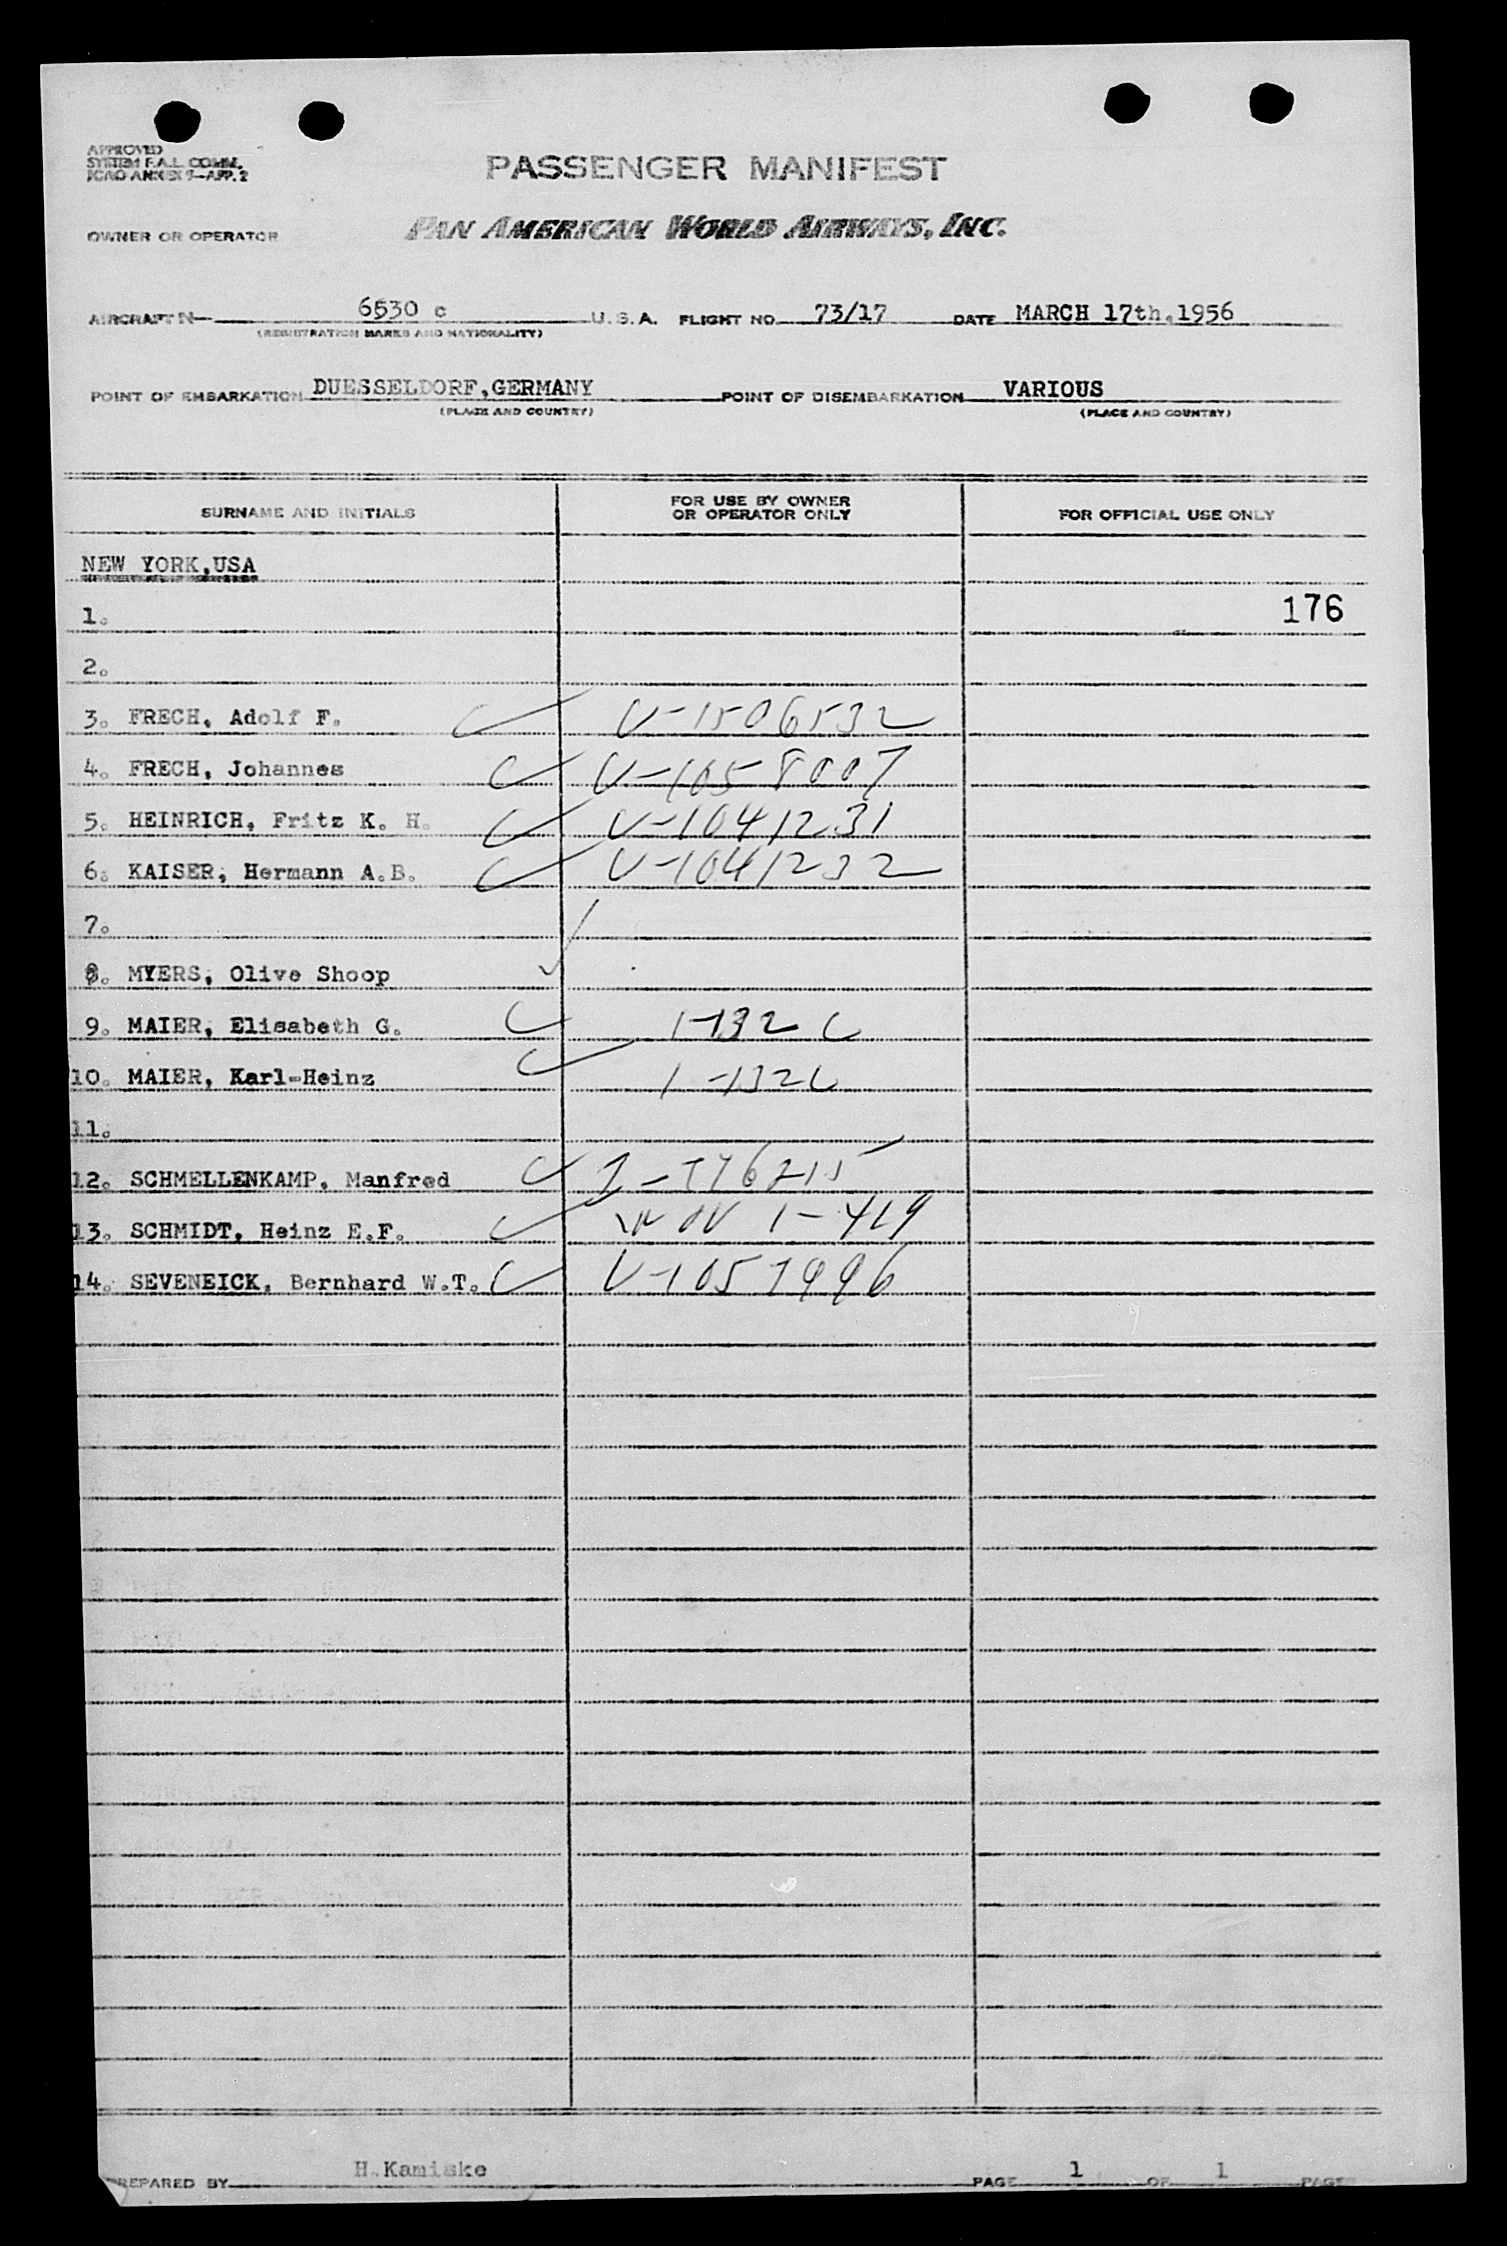 APPROVED
SYSTEM F.A.L. COMM.
ICAO ANNEX 9-APP. 2
PASSENGER MANIFEST
OWNER OR OPERATOR PAN AMERICAN WORLD AIRWAYS, INC.
AIRCRAFT N- 6530 c U. S. A. FLIGHT NO. 73/17 DATE MARCH 17th.1956
(REGISTRATION MARKS AND NATIONALITY)
POINT OF EMBARKATION DUESSELDORF,GERMANY POINT OF DISEMBARKATION VARIOUS
(PLACE AND COUNTRY) (PLACE AND COUNTRY)
SURNAME AND INITIALS FOR USE BY OWNER OR OPERATOR ONLY FOR OFFICIAL USE ONLY
NEW YORK,USA
1. 176
2.
3. FRECH, Adolf F. V-1506532
4. FRECH, Johannes V-1058007
5. HEINRICH, Fritz K. H. V-1041231
6. KAISER, Hermann A.B. V-1041232
7.
8. MYERS, Olive Shoop
9. MAIER, Elisabeth G. 1-132
10. MAIER, Karl-Heinz 1-132
11.
12. SCHMELLENKAMP, Manfred
13. SCHMIDT, Heinz E.F.
14. SEVENEICK, Bernhard W.T. V-1057996
PREPARED BY H.Kamiske PAGE 1 OF 1 PAGES